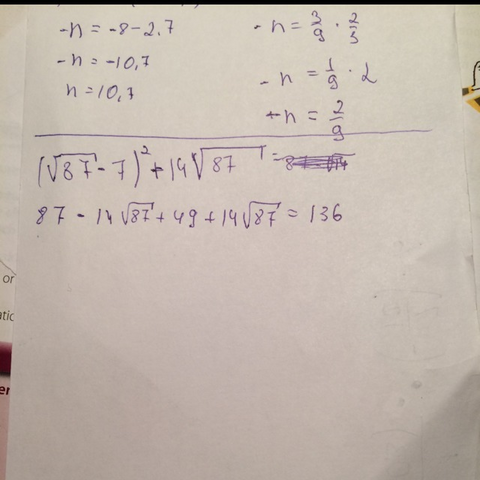 -n = -8-2,7
-n = -10,7
n = 10,7
-n = 3/9 · 2/3
-n = 1/9 · 2
+n = 2/9
(√87 - 7)² + 14√87 =
87 - 14√87 + 49 + 14√87 = 136
or
er